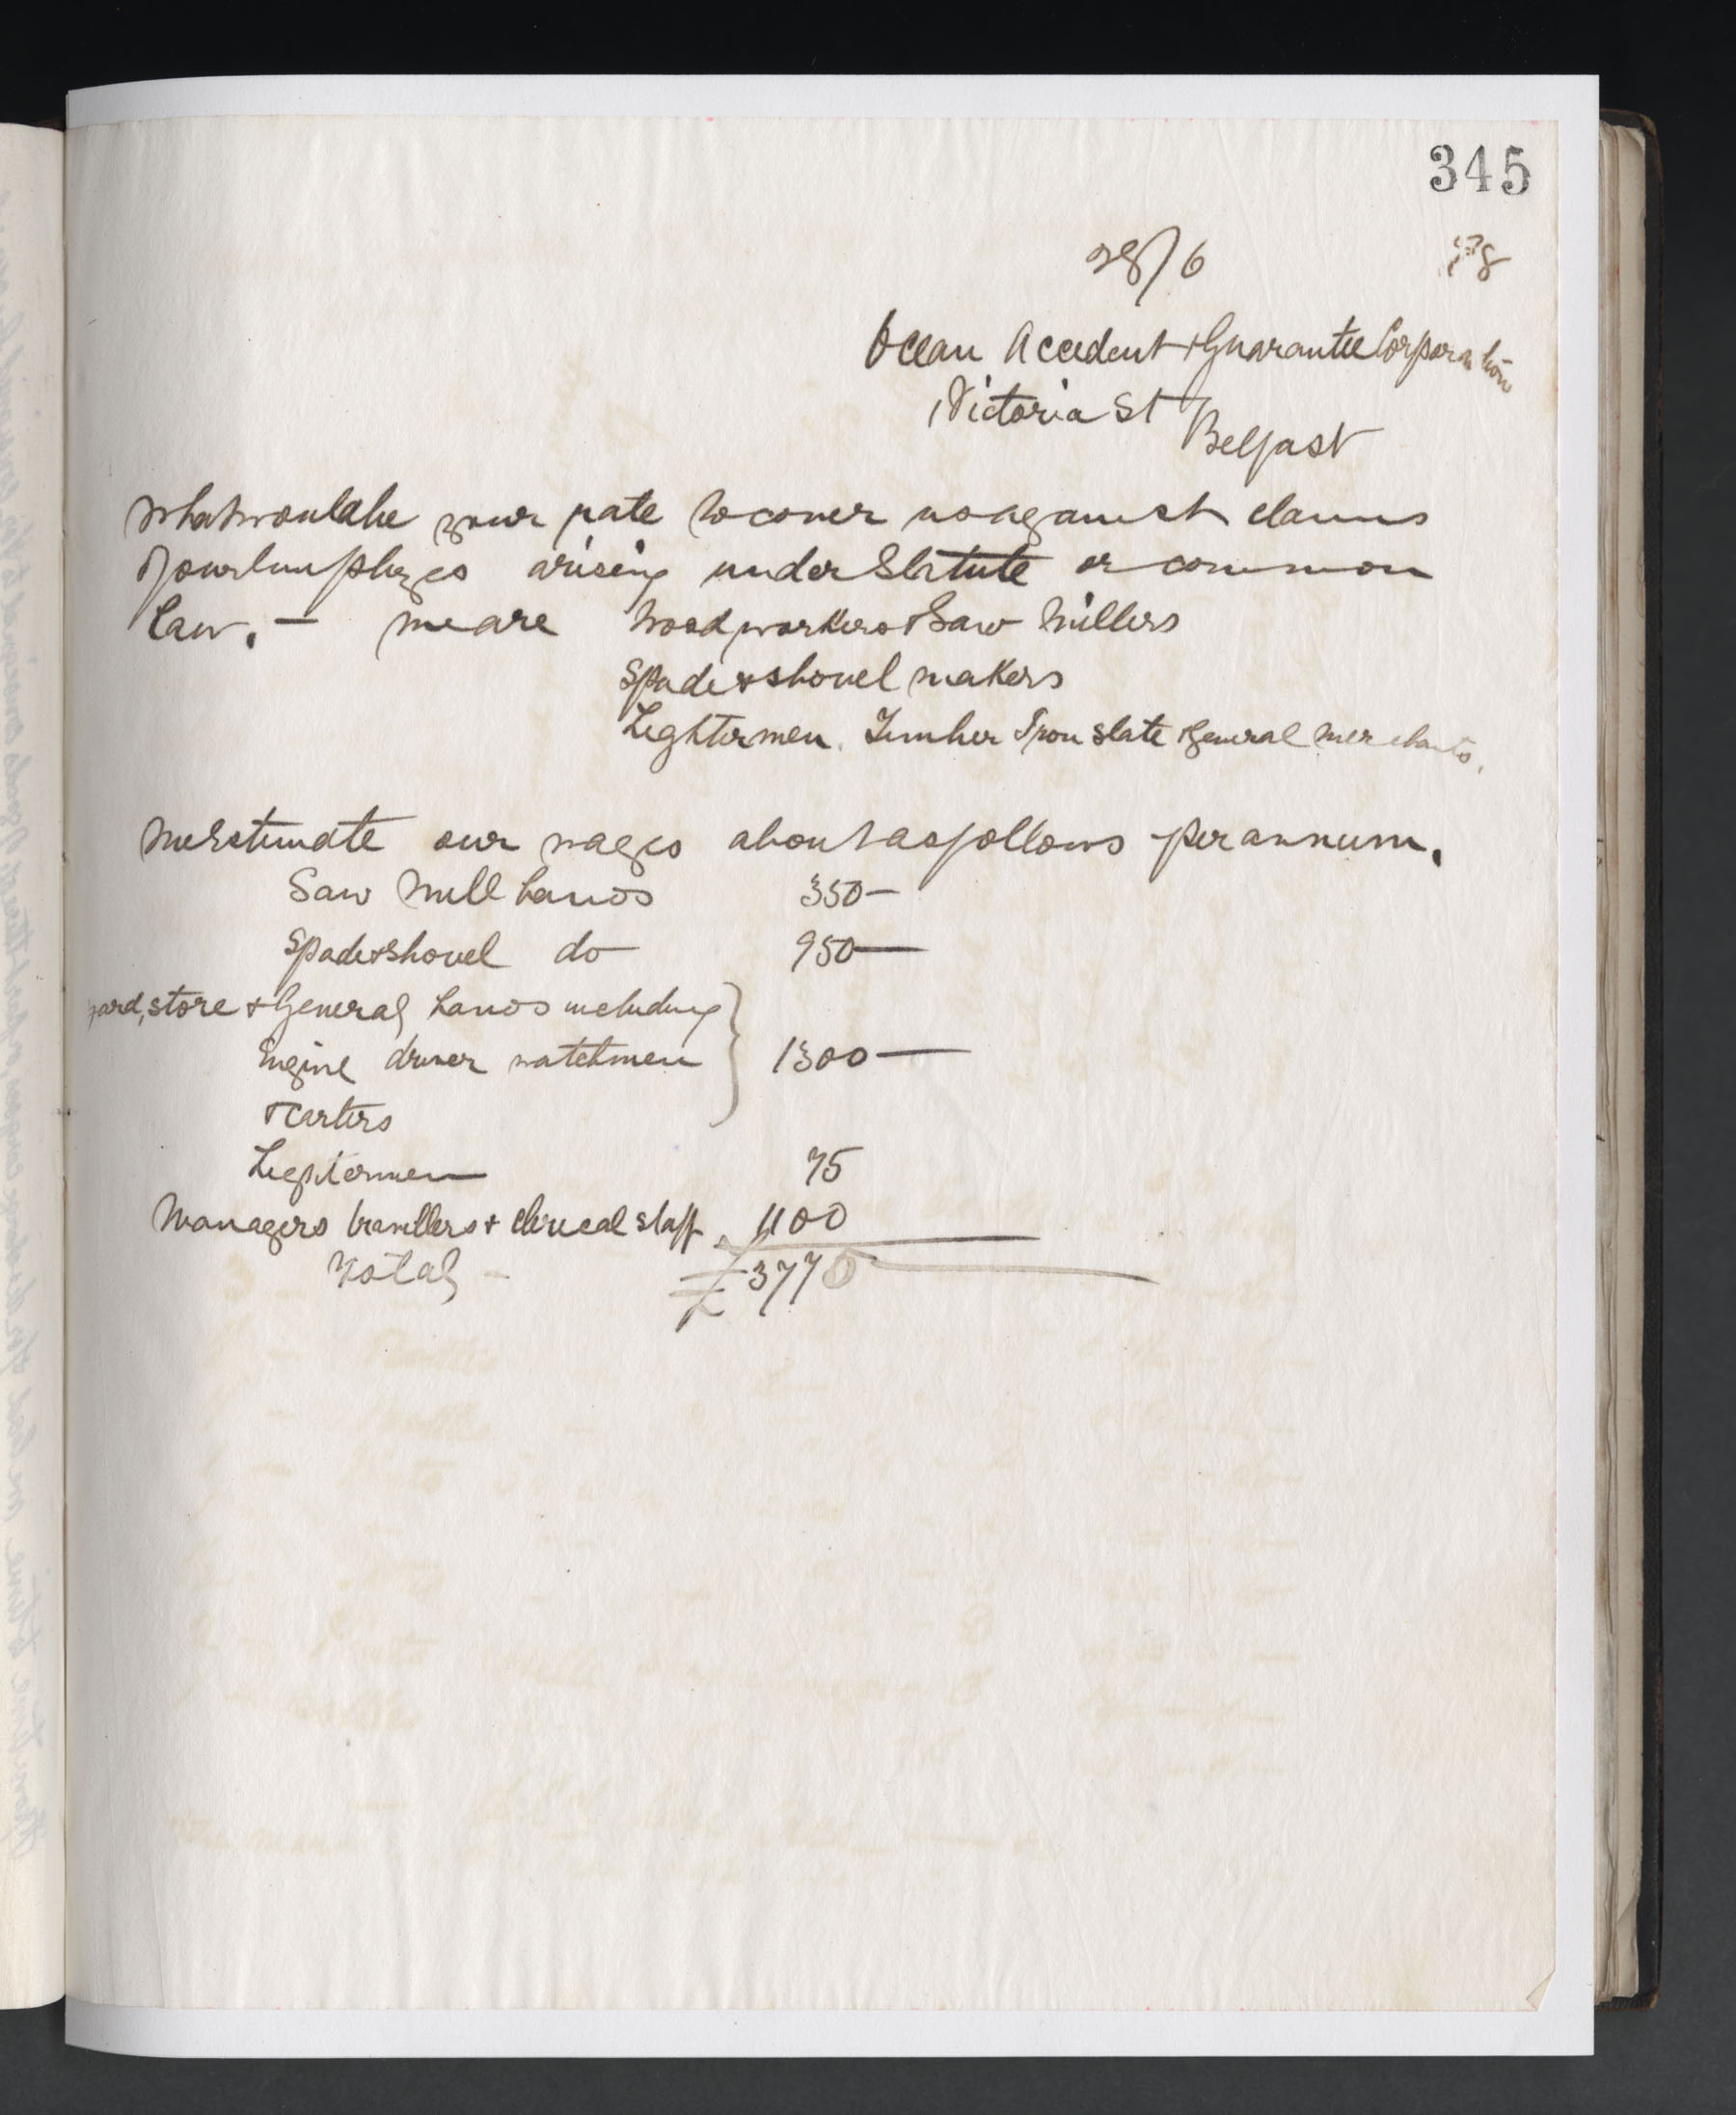 345
28/6 98
Ocean Accident & Guarantee Corporation
Victoria St
Belfast
What would be your rate to cover us against claims
of our employees arising under Statute or common
Law. — we are Wood workers & Saw Millers
Spade & shovel makers
Lightermen. Timber Iron slate & general merchants.
We estimate our wages about as follows per annum.
Saw Mill hands 350 —
Spade & Shovel do 950 —
yard, store & General hands including
Engine driver watchmen 1300 —
& Carters
Lightermen 75
Managers travellers & clerical staff 1100
Total — £3775